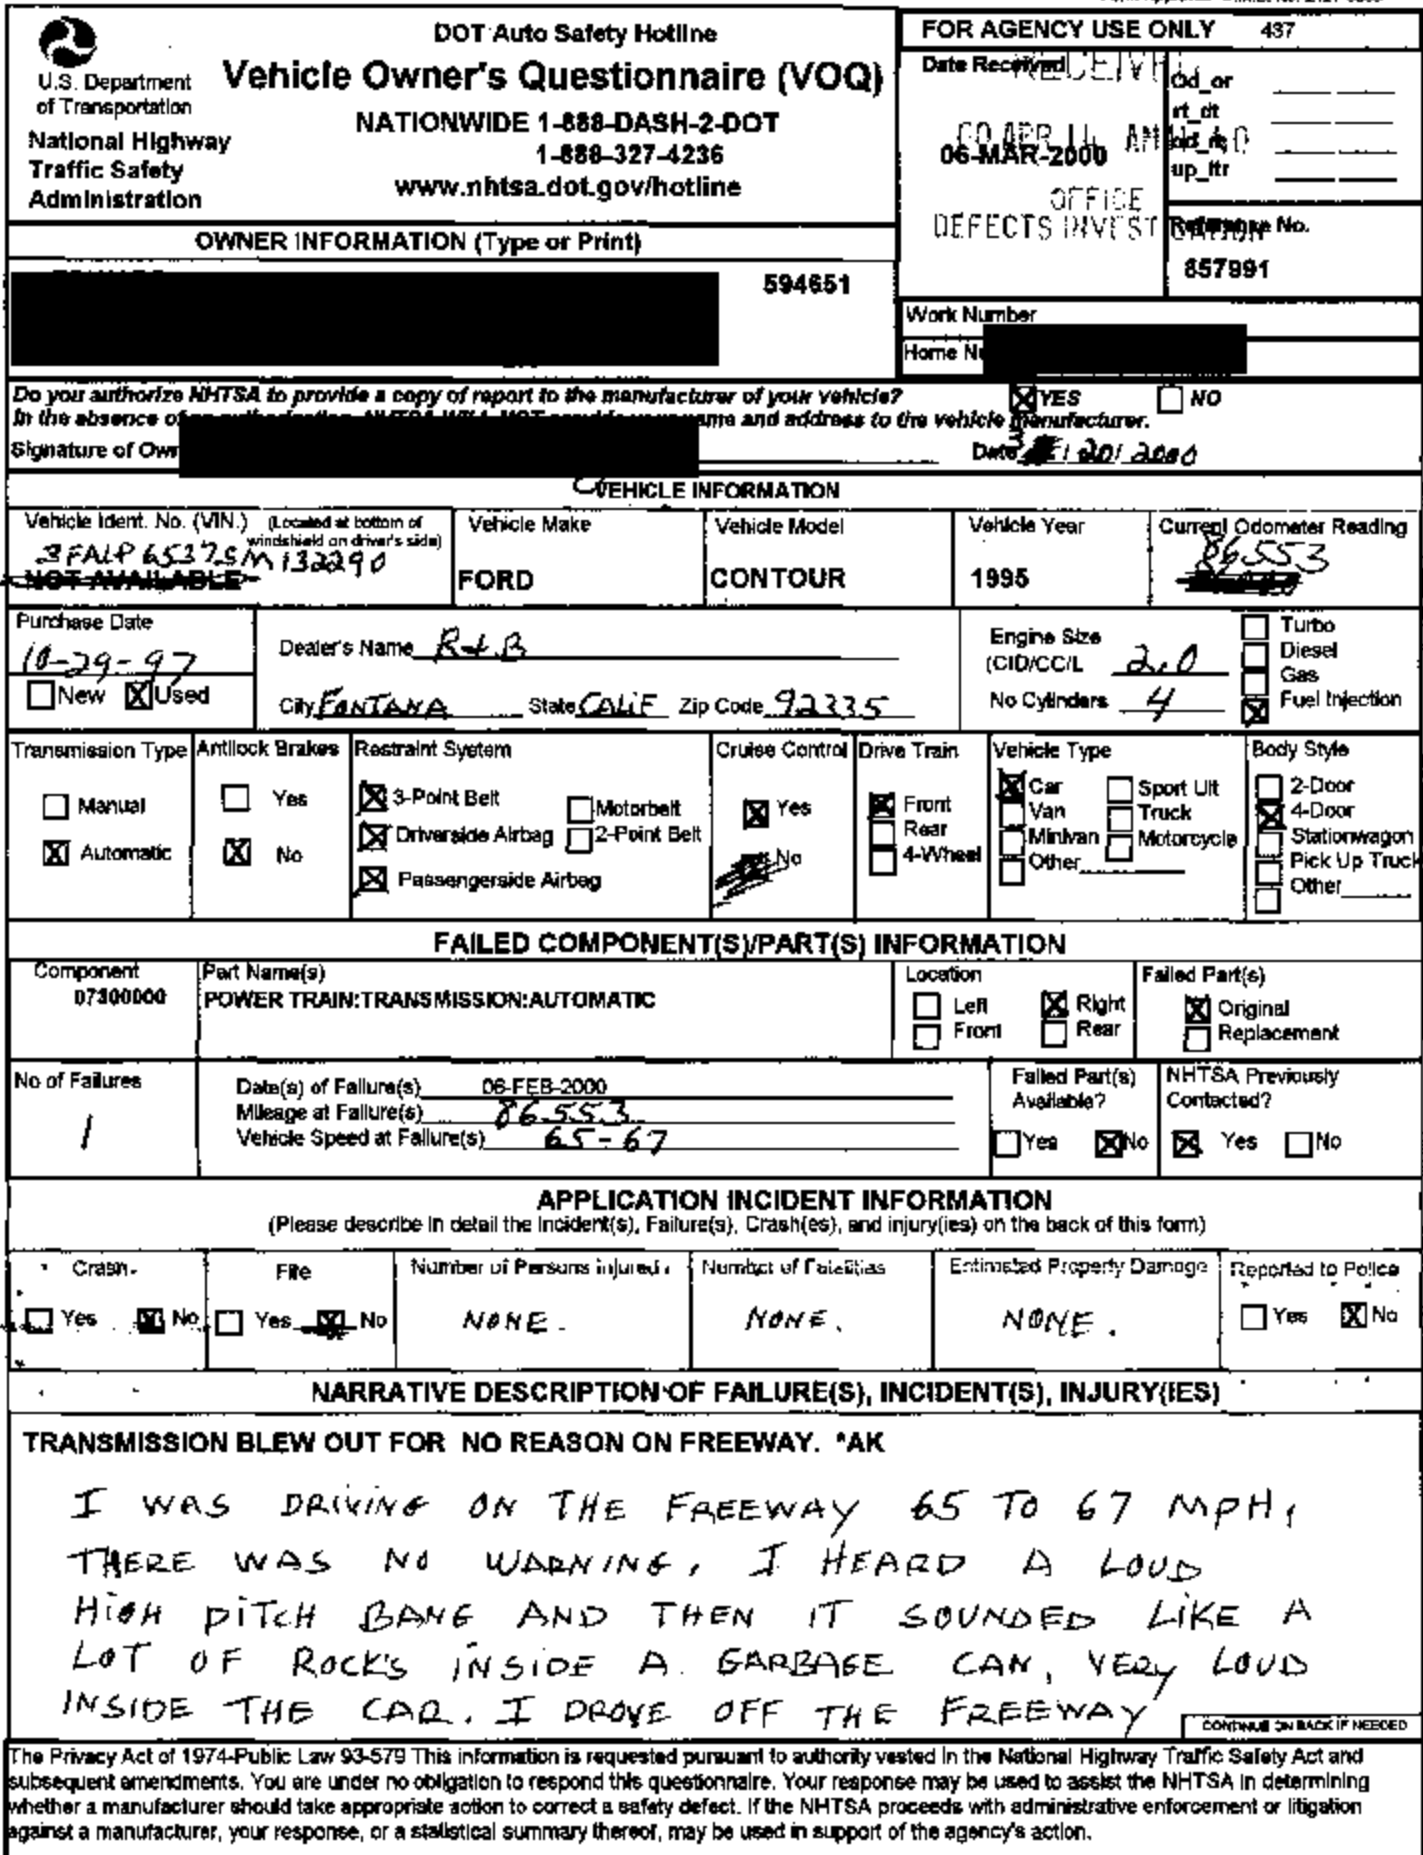 DOT Auto Safety Hotline
Vehicle Owner's Questionnaire (VOQ)
NATIONWIDE 1-888-DASH-2-DOT
1-888-327-4236
www.nhtsa.dot.gov/hotline
U.S. Department
of Transportation
National Highway
Traffic Safety
Administration
FOR AGENCY USE ONLY 437
Date Received
06-MAR-2000
OFFICE
DEFECTS INVESTIGATION
Od_or
rt_dt
od_rt
up_ltr
Reference No.
857991
OWNER INFORMATION (Type or Print)
594651
Work Number
Home Nu
Do you authorize NHTSA to provide a copy of report to the manufacturer of your vehicle? YES NO
In the absence of name and address to the vehicle manufacturer.
Signature of Own Date 3/20/2000
VEHICLE INFORMATION
Vehicle Ident. No. (VIN.) (Located at bottom of windshield on driver's side)
3FALP6537SM132290
NOT AVAILABLE
Vehicle Make
FORD
Vehicle Model
CONTOUR
Vehicle Year
1995
Current Odometer Reading
86553
Purchase Date
10-29-97
New Used
Dealer's Name R&B
City FONTANA State CALIF Zip Code 92335
Engine Size
(CID/CC/L 2.0
No Cylinders 4
Turbo
Diesel
Gas
Fuel Injection
Transmission Type
Manual
Automatic
Antilock Brakes
Yes
No
Restraint System
3-Point Belt Motorbelt
Driverside Airbag 2-Point Belt
Passengerside Airbag
Cruise Control
Yes
No
Drive Train
Front
Rear
4-Wheel
Vehicle Type
Car Sport Ult
Van Truck
Minivan Motorcycle
Other
Body Style
2-Door
4-Door
Stationwagon
Pick Up Truck
Other
FAILED COMPONENT(S)/PART(S) INFORMATION
Component
07300000
Part Name(s)
POWER TRAIN:TRANSMISSION:AUTOMATIC
Location
Left Right
Front Rear
Failed Part(s)
Original
Replacement
No of Failures
1
Date(s) of Failure(s) 06-FEB-2000
Mileage at Failure(s) 86553
Vehicle Speed at Failure(s) 65-67
Failed Part(s)
Available?
Yes No
NHTSA Previously
Contacted?
Yes No
APPLICATION INCIDENT INFORMATION
(Please describe in detail the Incident(s), Failure(s), Crash(es), and injury(ies) on the back of this form)
Crash
Yes No
Fire
Yes No
Number of Persons injured
NONE.
Number of Fatalities
NONE.
Estimated Property Damage
NONE.
Reported to Police
Yes No
NARRATIVE DESCRIPTION OF FAILURE(S), INCIDENT(S), INJURY(IES)
TRANSMISSION BLEW OUT FOR NO REASON ON FREEWAY. *AK
I WAS DRIVING ON THE FREEWAY 65 TO 67 MPH,
THERE WAS NO WARNING, I HEARD A LOUD
HIGH PITCH BANG AND THEN IT SOUNDED LIKE A
LOT OF ROCKS INSIDE A GARBAGE CAN, VERY LOUD
INSIDE THE CAR. I DROVE OFF THE FREEWAY
CONTINUE ON BACK IF NEEDED
The Privacy Act of 1974-Public Law 93-579 This information is requested pursuant to authority vested in the National Highway Traffic Safety Act and
subsequent amendments. You are under no obligation to respond this questionnaire. Your response may be used to assist the NHTSA in determining
whether a manufacturer should take appropriate action to correct a safety defect. If the NHTSA proceeds with administrative enforcement or litigation
against a manufacturer, your response, or a statistical summary thereof, may be used in support of the agency's action.